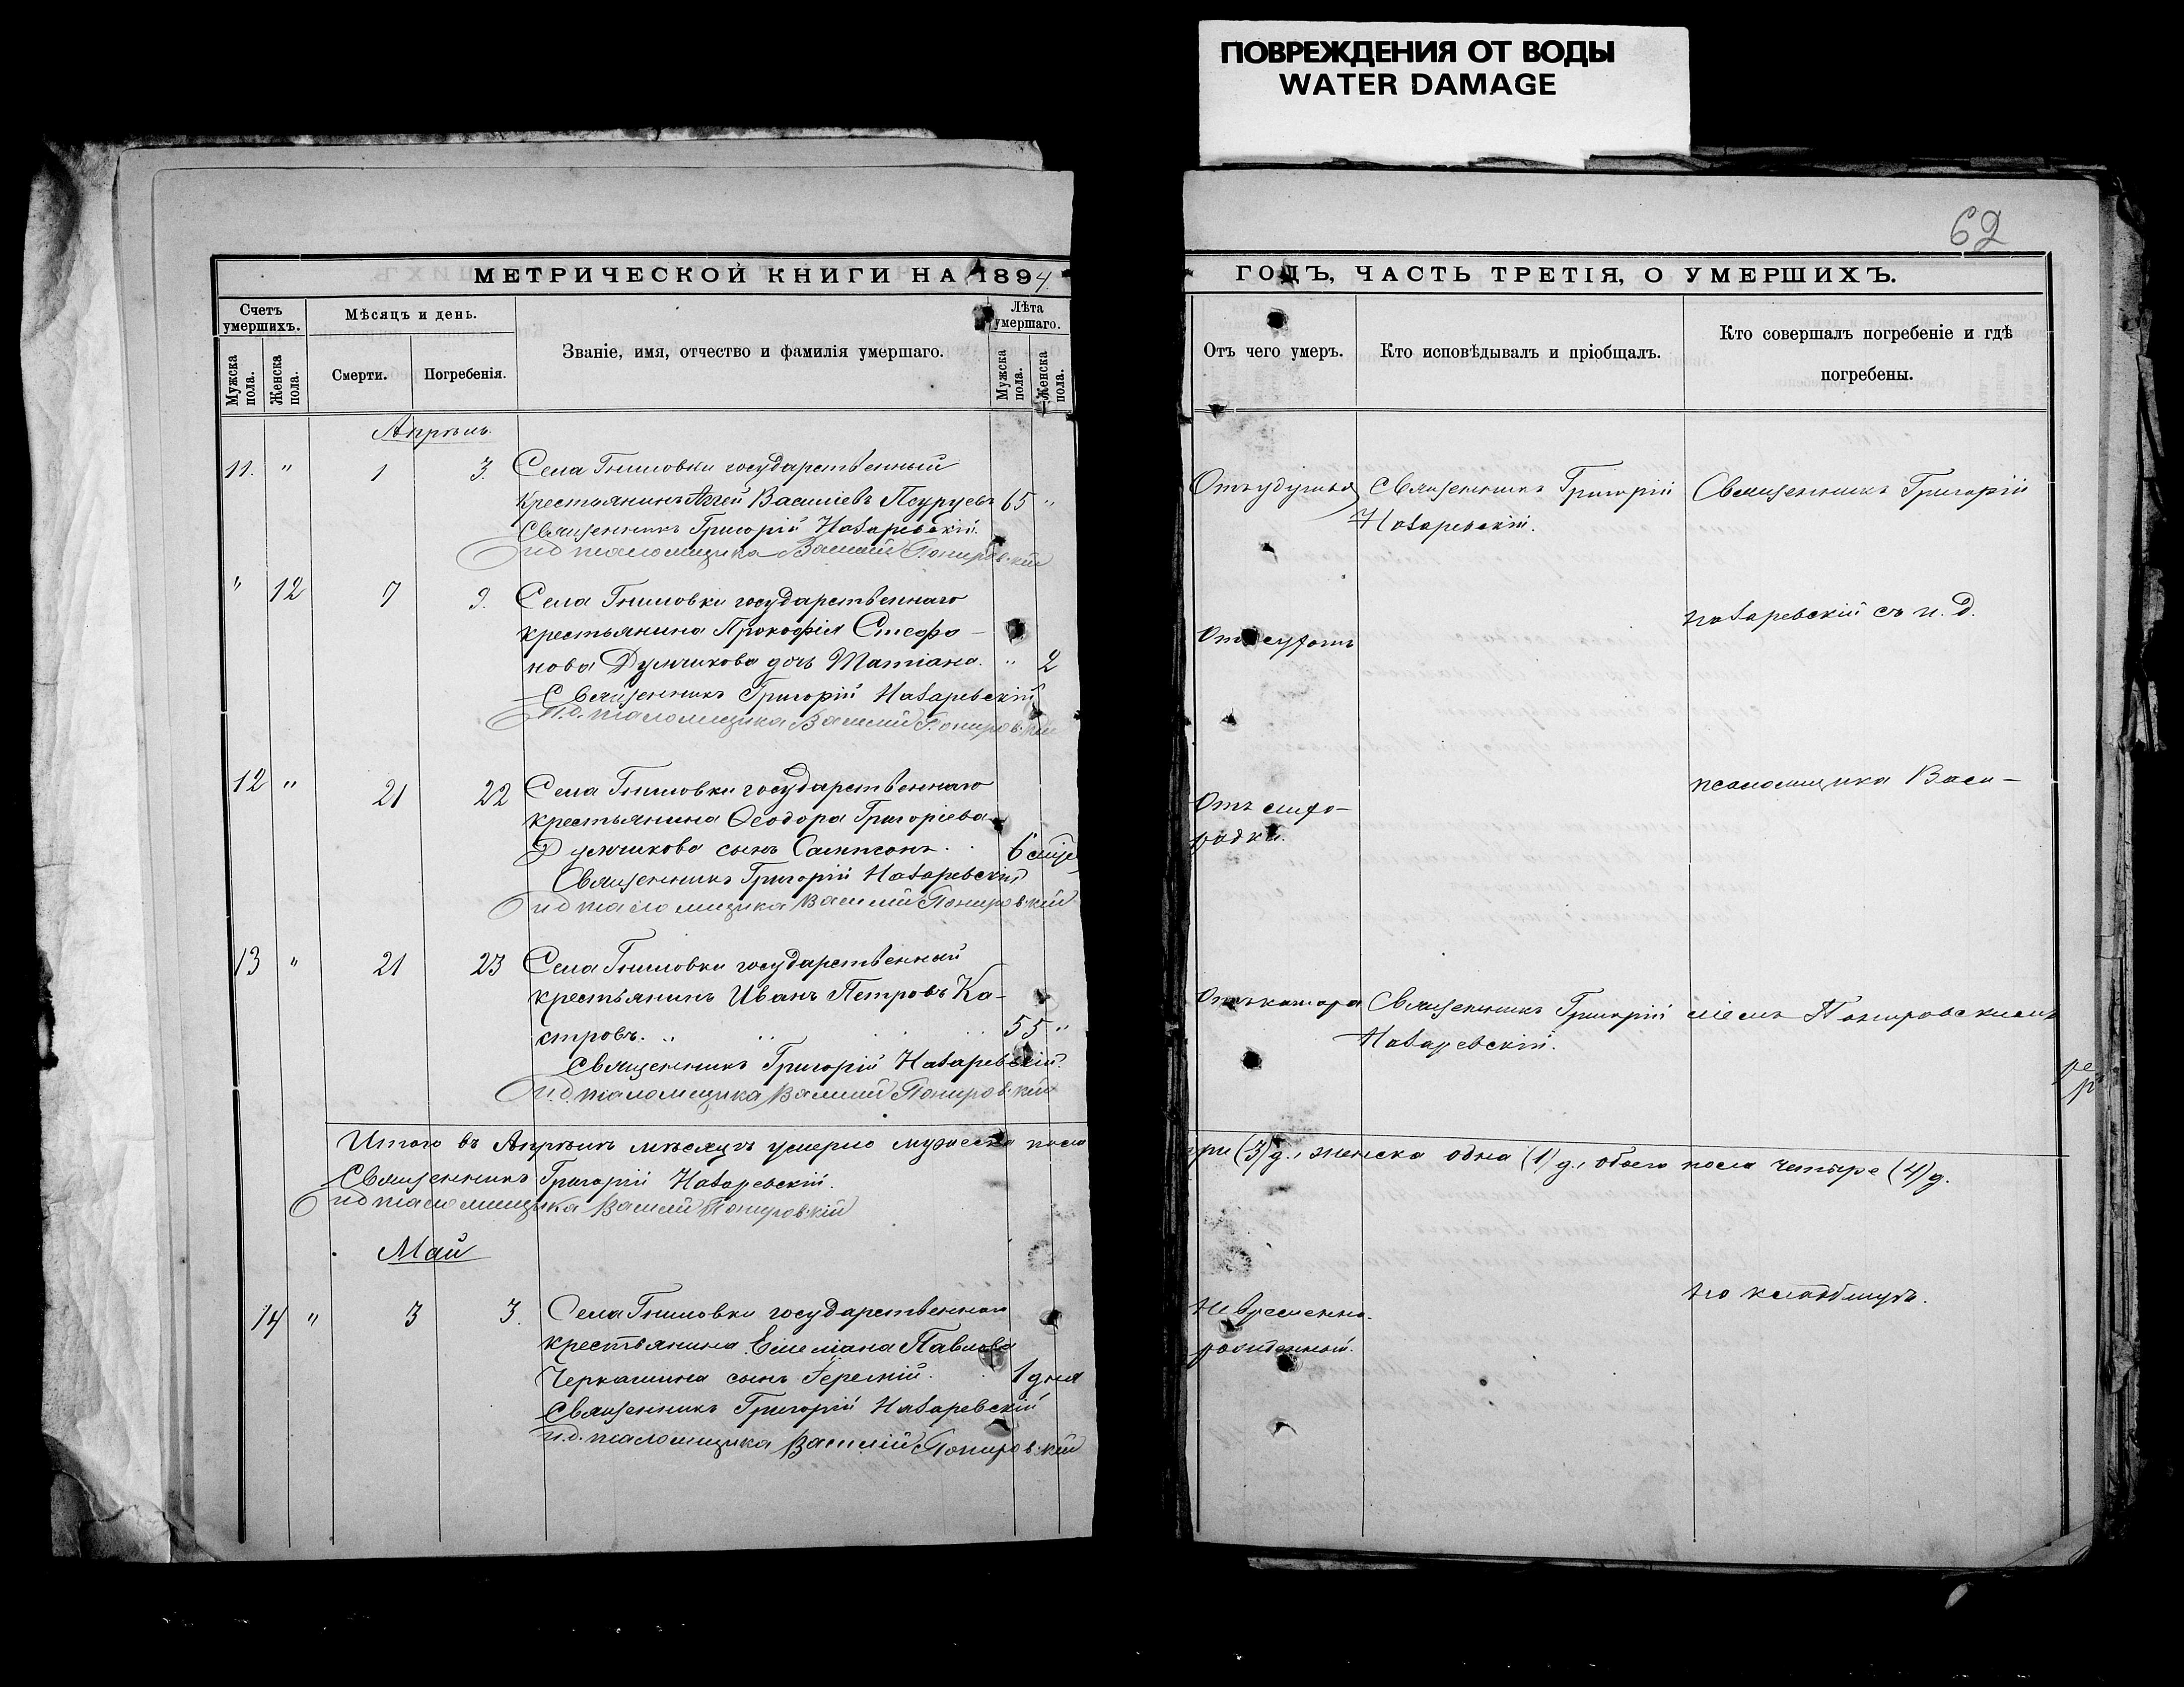 ПОВРЕЖДЕНИЯ ОТ ВОДЫ
WATER DAMAGE
62
МЕТРИЧЕСКОЙ КНИГИ НА 1894
Счетъ умершихъ.
Мужска пола.
Женска пола.
Мѣсяцъ и день.
Смерти.
Погребенія.
Званіе, имя, отчество и фамилія умершаго.
Лѣта умершаго.
Мужска пола.
Женска пола.
Апрѣль.
11. " 1 3. Села Гниловки государственный
крестьянинъ Аггей Василіевъ 65 "
Священникъ Григорій Назаревскій.
и д псаломщика Василій Понировскій
" 12 7 9. Села Гниловки государственнаго
крестьянина Прокофія Стефа-
нова Думчикова дочь Татіана. " 2
Священникъ Григорій Назаревскій
И.д. псаломщика Василій Понировскій
12 " 21 22 Села Гниловки государственнаго
крестьянина Ѳеодора Григоріева
Думчикова сынъ Сампсонъ. 6 мѣся
Священникъ Григорій Назаревскій
и д псаломщика Василій Понировскій
13 " 21 23 Села Гниловки государственный
крестьянинъ Иванъ Петровъ Ка-
стровъ. 55 "
Священникъ Григорій Назаревскій.
И.д. псаломщика Василій Понировскій
Итого въ Апрѣлѣ мѣсяцѣ умерло мужеска пола
Священникъ Григорій Назаревскій.
и д псаломщика Василій Понировскій
Май
14 " 3 3. Села Гниловки государственнаго
крестьянина Емеліана Павлова
Черкашина сынъ 1 дня
Священникъ Григорій Назаревскій
и.д. псаломщика Василій Понировскій
ГОДЪ, ЧАСТЬ ТРЕТІЯ, О УМЕРШИХЪ.
Отъ чего умеръ.
Кто исповѣдывалъ и пріобщалъ.
Кто совершалъ погребеніе и гдѣ погребены.
Отъ удушья Священникъ Григорій Священникъ Григорій
Назаревскій.
Назаревскій съ и. д.
Отъ
псаломщика Васи-
Отъ лихо-
радки.
Священникъ Григорій ліемъ Понировскимъ
Назаревскій.
три (3) д., женска одна (1) д., обоего пола четыре (4) д.
на кладбищѣ.
Невременно-
рожденный.